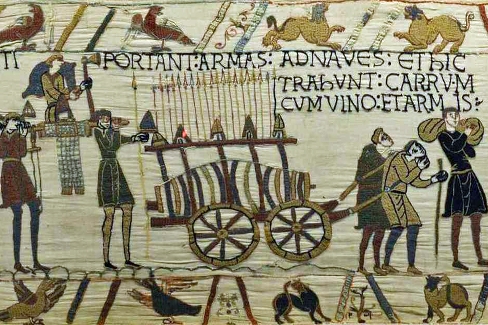 TI PORTANT:ARMAS: ADNAVES: EThIC
TRAhUNT: CARRVM
CVMVINO:ETARMIS: